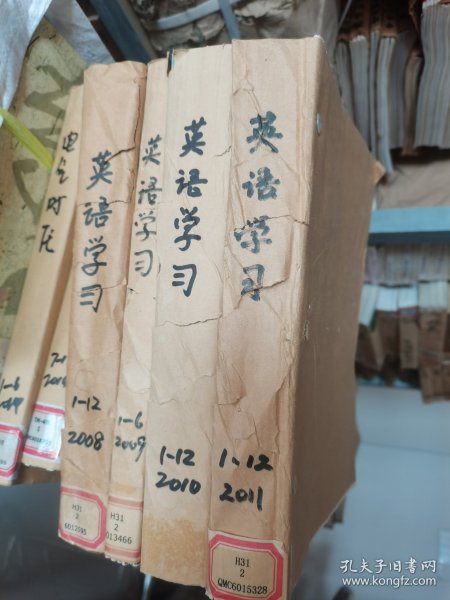 电气时代
7-1
1-6
英语学习
1-12
2008
H31
2
6012595
英语学习
1-6
2009
H31
2
013466
英语学习
1-12
2010
英语学习
1-12
2011
H31
2
QMC6015328
孔夫子旧书网
www.kongfz.com